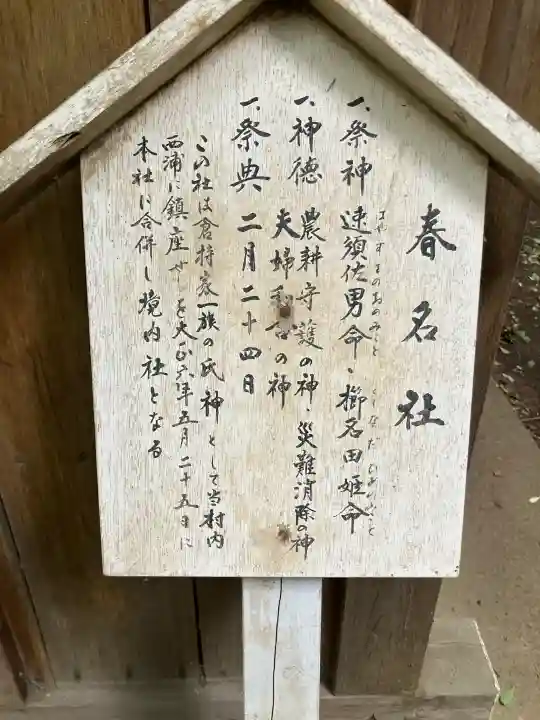 春名社
一、祭神 速須佐男命・櫛名田姫命
はやすさのおのみこと くしなだひめのみこと
一、神徳 農耕守護の神・災難消除の神
夫婦和合の神
一、祭典 二月二十四日
この社は倉持家一族の氏神として当村内
西浦に鎮座せしを大正六年五月二十五日に
本社に合併し境内社となる